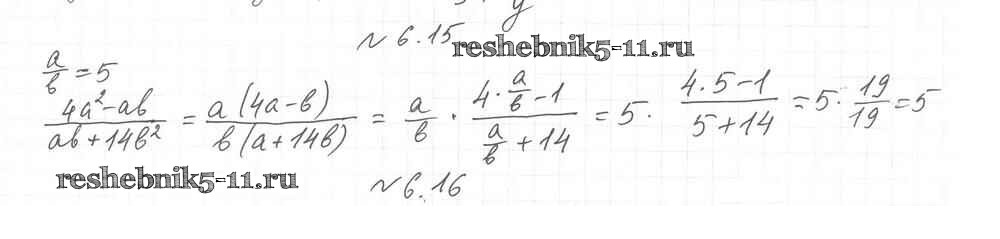 № 6.15
reshebnik5-11.ru
a/b = 5
(4a²-ab)/(ab+14b²) = (a(4a-b))/(b(a+14b)) = a/b · (4·a/b-1)/(a/b+14) = 5 · (4·5-1)/(5+14) = 5 · 19/19 = 5
reshebnik5-11.ru
№ 6.16